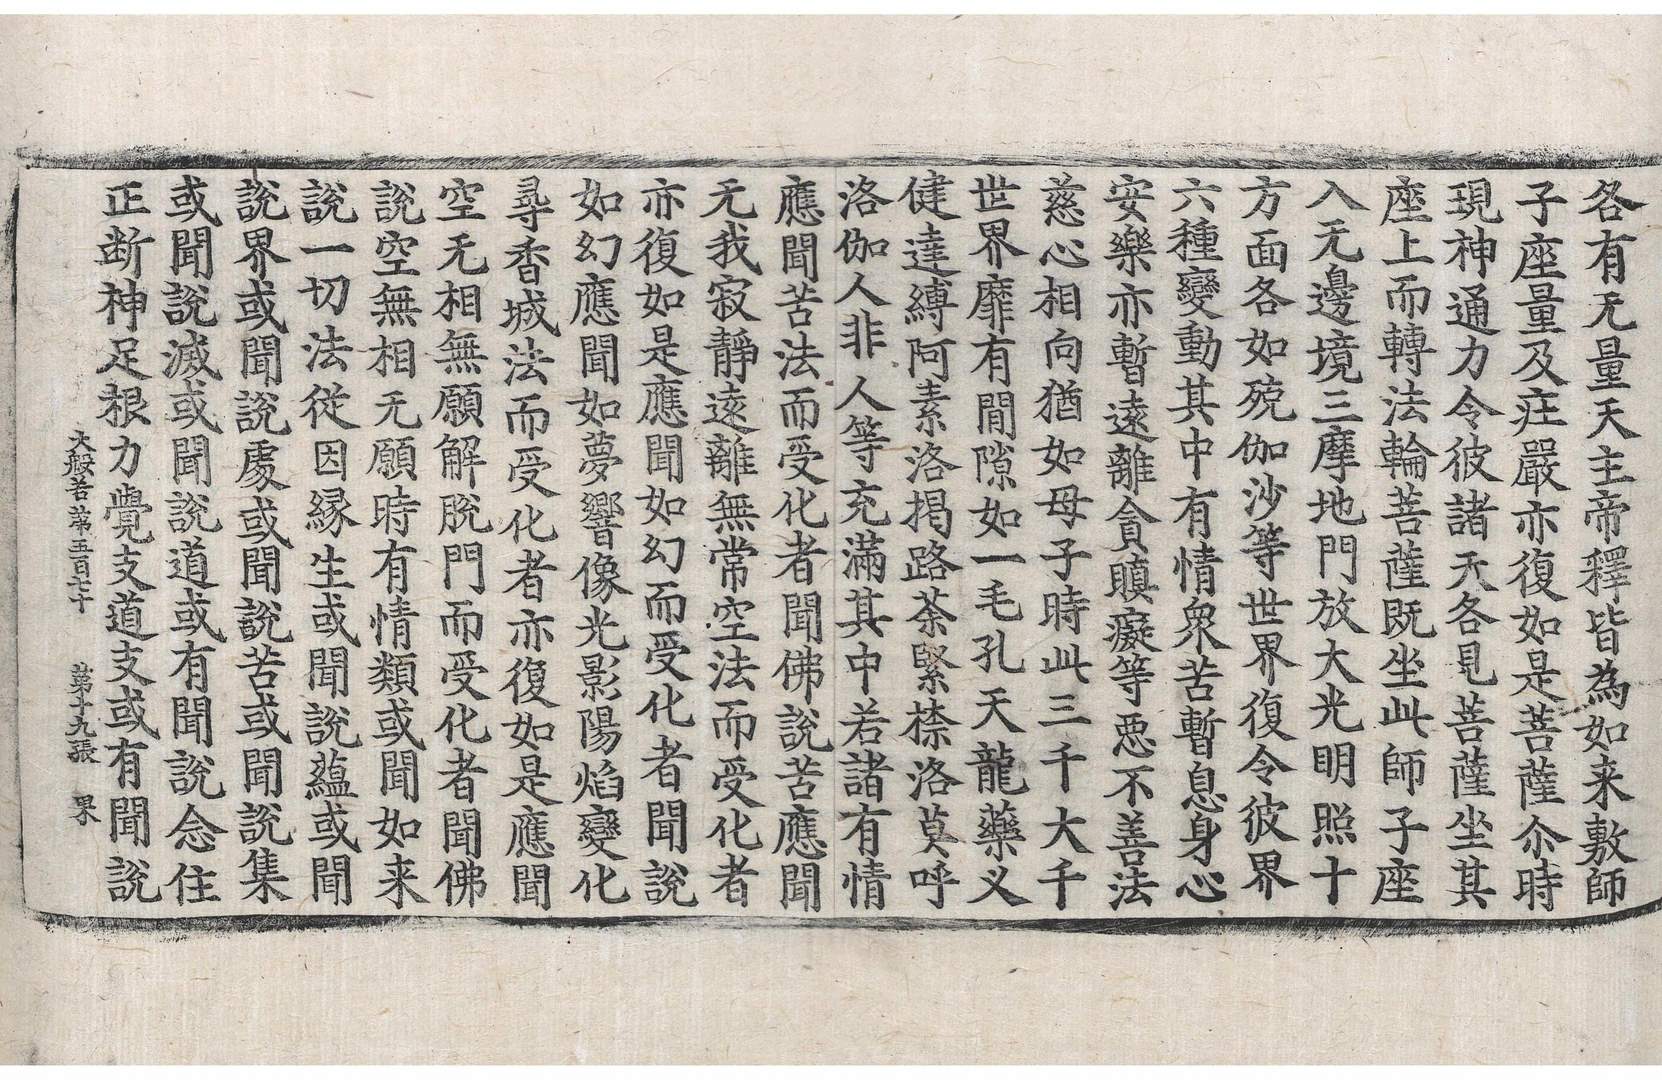 各有无量天主帝釋皆為如来敷師
子座量及庄嚴亦復如是菩薩尒時
現神通力令彼諸天各見菩薩坐其
座上而轉法輪菩薩既坐此師子座
入无邊境三摩地門放大光明照十
方面各如殑伽沙等世界復令彼界
六種變動其中有情衆苦暫息身心
安樂亦暫遠離貪瞋癡等惡不善法
慈心相向猶如母子時此三千大千
世界靡有間隙如一毛孔天龍藥义
健達縛阿素洛揭路荼緊㮈洛莫呼
洛伽人非人等充滿其中若諸有情
應聞苦法而受化者聞佛說苦應聞
无我寂靜遠離無常空法而受化者
亦復如是應聞如幻而受化者聞說
如幻應聞如夢響像光影陽焰變化
尋香城法而受化者亦復如是應聞
空无相無願解脫門而受化者聞佛
說空無相无願時有情類或聞如来
說一切法從因緣生或聞說蘊或聞
說界或聞說處或聞說苦或聞說集
或聞說滅或聞說道或有聞說念住
正断神足根力覺支道支或有聞說
大般若第五百七十　第十九張　果